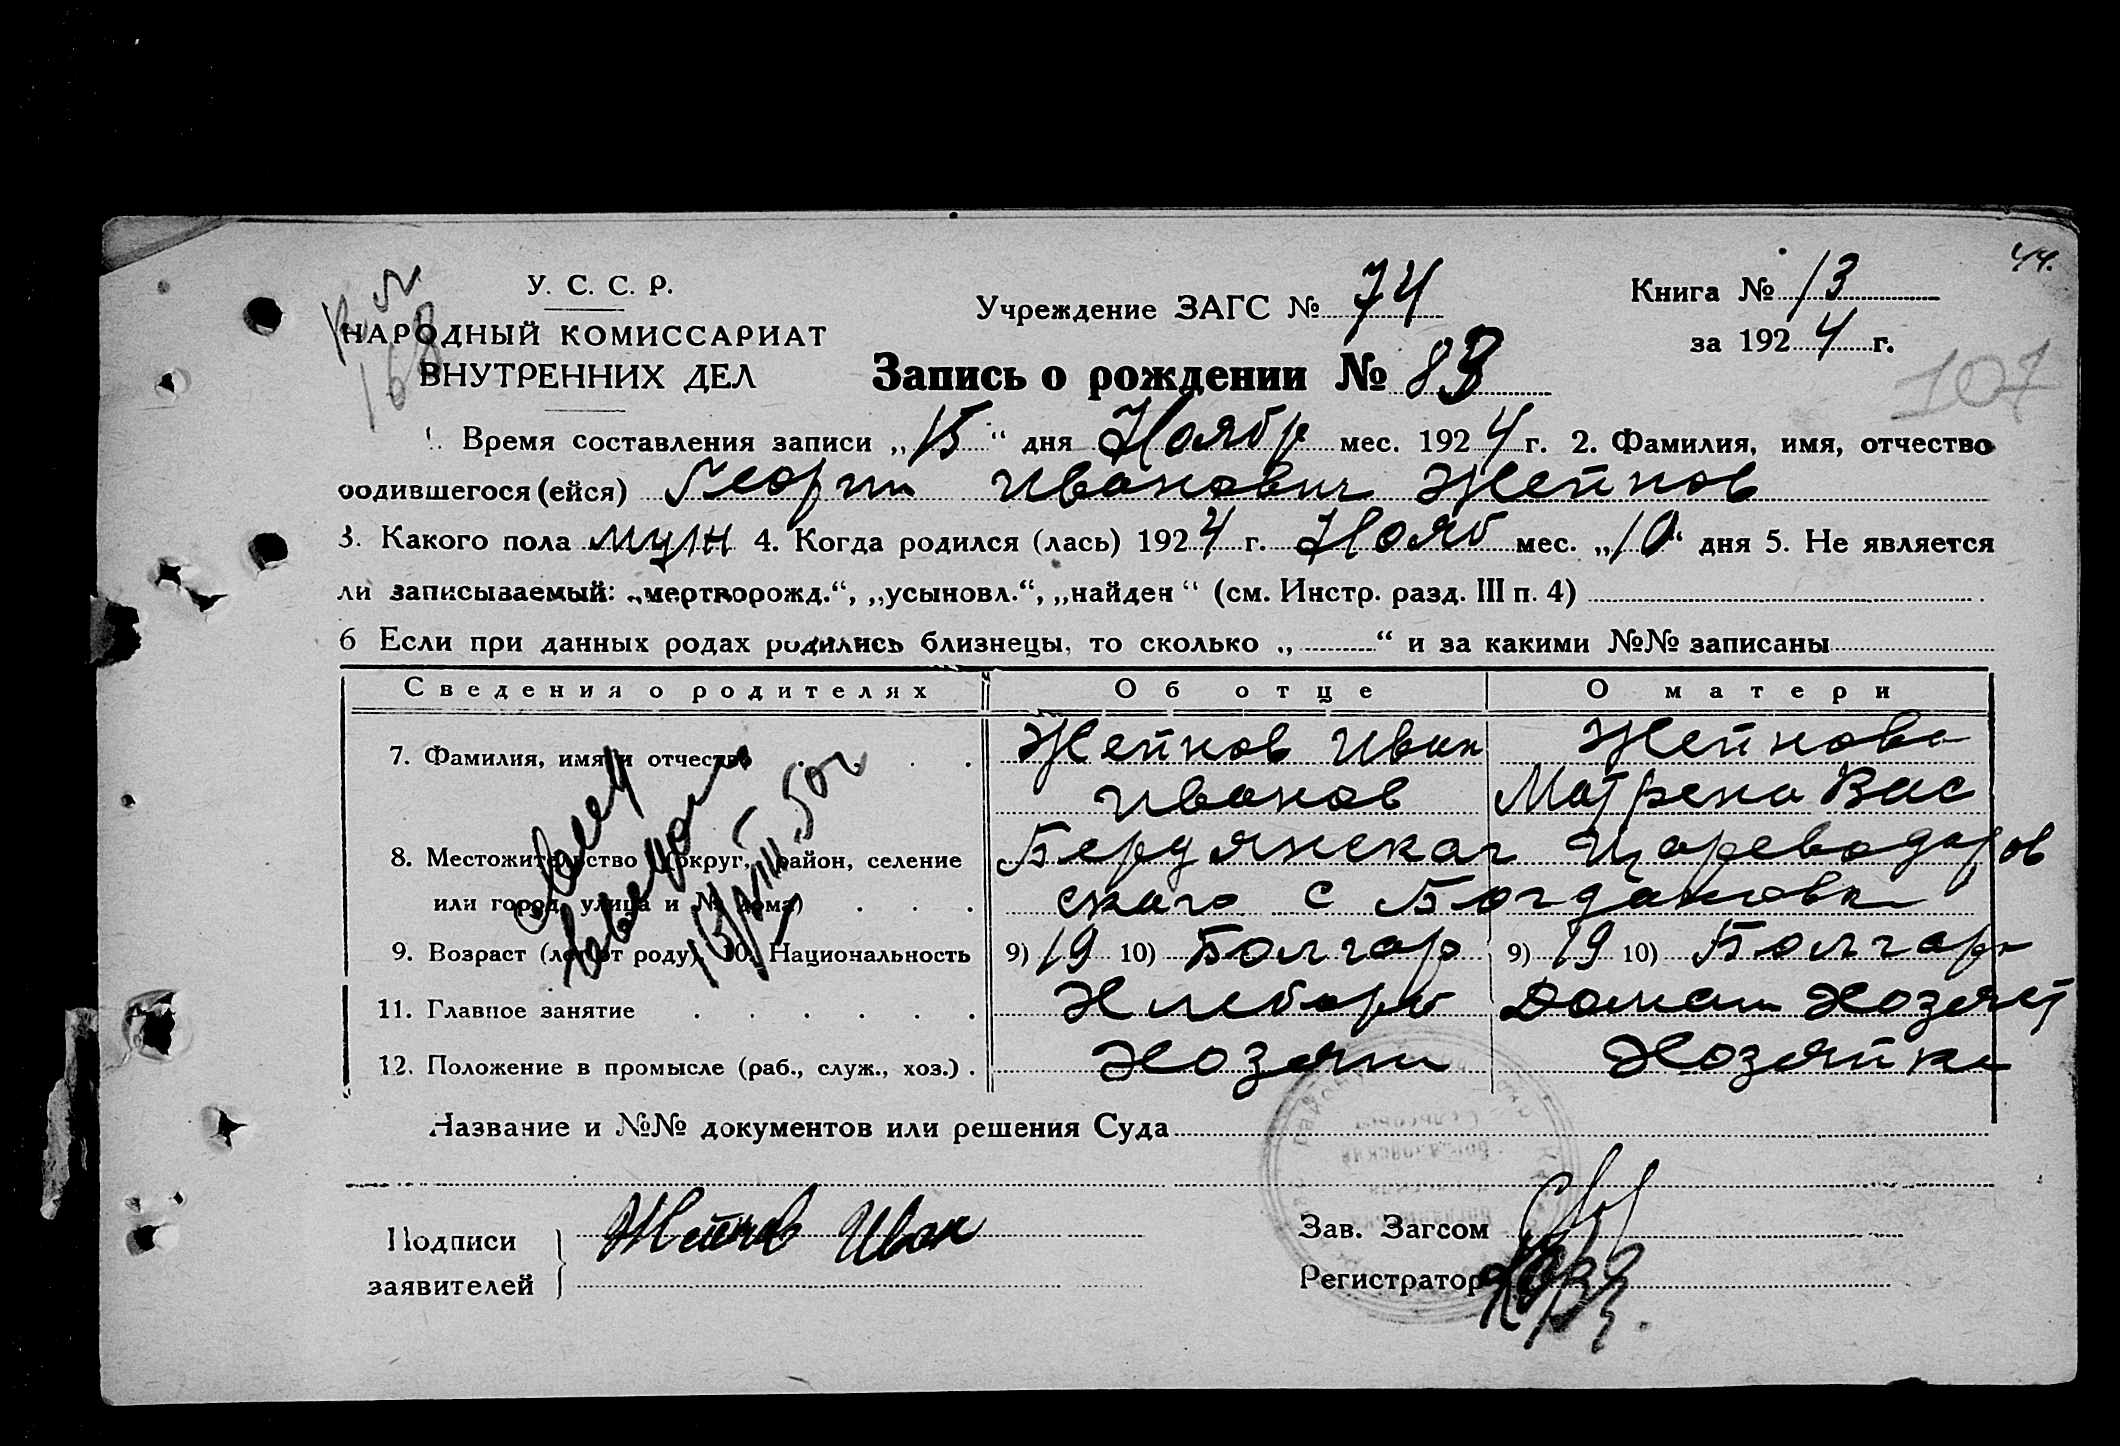 44.
У. С. С. Р.
НАРОДНЫЙ КОМИССАРИАТ
ВНУТРЕННИХ ДЕЛ
168
Учреждение ЗАГС № 74
Книга № 13
за 1924 г.
Запись о рождении № 83
107
1. Время составления записи „15“ дня Ноябр мес. 1924 г. 2. Фамилия, имя, отчество
родившегося (ейся) Георги Иванович Жейнов
3. Какого пола муж 4. Когда родился (лась) 1924 г. Нояб мес. „10“ дня 5. Не является
ли записываемый: „мертворожд.“, „усыновл.“, „найден“ (см. Инстр. разд. III п. 4)
6 Если при данных родах родились близнецы, то сколько „ “ и за какими №№ записаны
Сведения о родителях Об отце О матери
7. Фамилия, имя и отчество Жейнов Иван Жейнова
Иванов Матрена Вас
8. Местожительство (округ, район, селение Бердянская Цареводаров
или город, улица и № дома) ского с Богдановка
9. Возраст (лет от роду) 10. Национальность 9) 19 10) Болгар 9) 19 10) Болгарк
11. Главное занятие Хлебороб Домаш Хозяйст
12. Положение в промысле (раб., служ., хоз.) Хозяин Хозяйка
50 г
Название и №№ документов или решения Суда
Подписи
заявителей
Жейнов Иван
Зав. Загсом
Регистратор